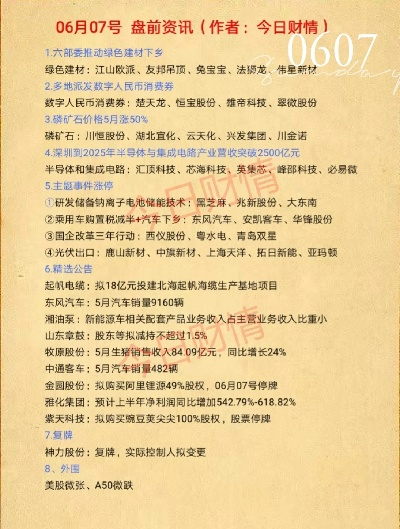 06月07号 盘前资讯（作者：今日财情）
0607
1.六部委推动绿色建材下乡
绿色建材：江山欧派、友邦吊顶、兔宝宝、法狮龙、伟星新材
2.多地派发数字人民币消费券
数字人民币消费券：楚天龙、恒宝股份、雄帝科技、翠微股份
3.磷矿石价格5月涨50%
磷矿石：川恒股份、湖北宜化、云天化、兴发集团、川金诺
4.深圳到2025年半导体与集成电路产业营收突破2500亿元
半导体和集成电路：汇顶科技、芯海科技、英集芯、峰岹科技、必易微
5.主题事件涨停
①研发储备钠离子电池储能技术：黑芝麻、兆新股份、大东南
②乘用车购置税减半+汽车下乡：东风汽车、安凯客车、华锋股份
③国企改革三年行动：西仪股份、粤水电、青岛双星
④光伏出口：鹿山新材、中旗新材、上海天洋、拓日新能、亚玛顿
6.精选公告
起帆电缆：拟18亿元投建北海起帆海缆生产基地项目
东风汽车：5月汽车销量9160辆
湘油泵：新能源车相关配套产品业务收入占主营业务收入比重小
山东章鼓：股东等拟减持不超过1.5%
牧原股份：5月生猪销售收入84.09亿元，同比增长24%
中通客车：5月汽车销量482辆
金圆股份：拟购买阿里锂源49%股权，06月07号停牌
雅化集团：预计上半年净利润同比增加542.79%-618.82%
紫天科技：拟购买豌豆荚尖尖100%股权，股票停牌
7.复牌
神力股份：复牌，实际控制人拟变更
8、外围
美股微张、A50微跌
今日财情
今日财情
今日财情